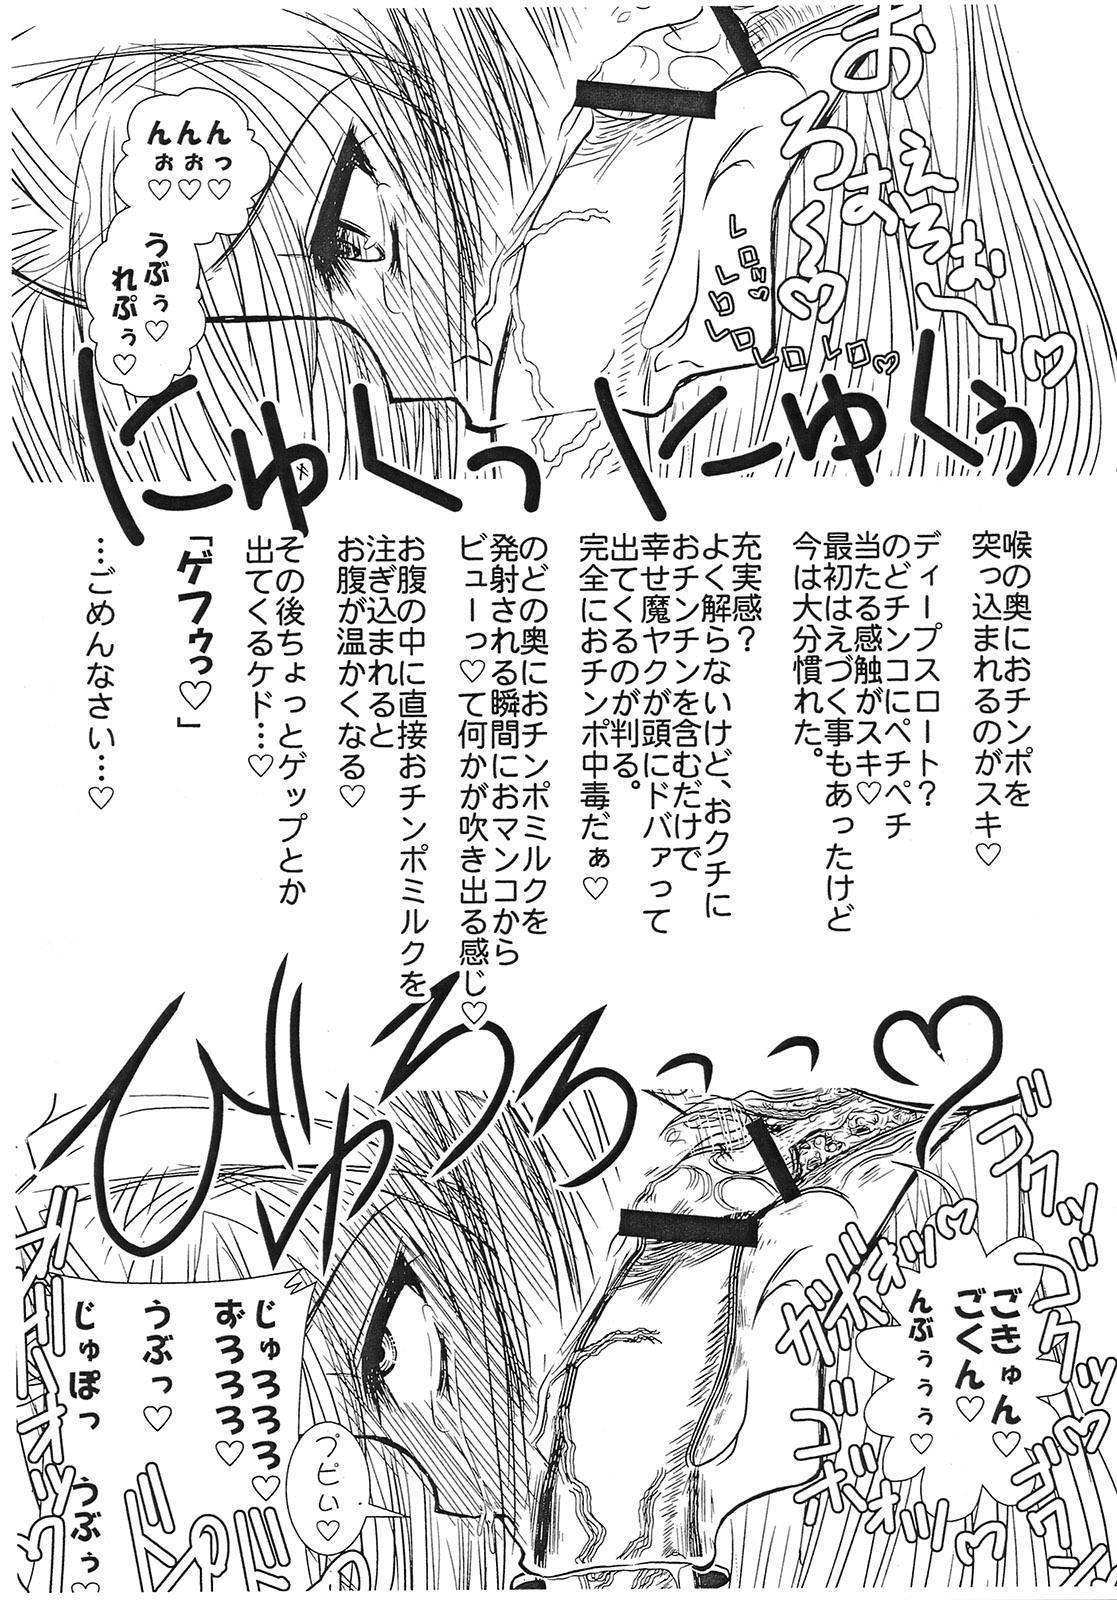 おろぉ〜♡
えろぉお〜♡
レロッ♡
レロレロ
レロレロ♡
んっ♡
んぉ♡
んぉ♡
うぶぅ♡
れぷぅ♡
にゅくっ
にゅくぅ
喉の奥におチンポを
突っ込まれるのがスキ♡
ディープスロート?
のどチンコにペチペチ
当たる感触がスキ♡
最初はえづく事もあったけど
今は大分慣れた。
充実感?
よく解らないけど、おクチに
おチンチンを含むだけで
幸せ魔ヤクが頭にドバァって
出てくるのが判る。
完全におチンポ中毒だぁ♡
のどの奥におチンポミルクを
発射される瞬間におマンコから
ビューっ♡て何かが吹き出る感じ♡
お腹の中に直接おチンポミルクを
注ぎ込まれると
お腹が温かくなる♡
その後ちょっとゲップとか
出てくるケド…♡
「ゲフゥっ♡」
…ごめんなさい…♡
びゅろろっっ♡
ゴクッ
ゴクッ
ごきゅん♡
ごくん♡
んぶぅぅぅ♡
じゅろろろ♡
おろろろろ♡
うぶっ♡
じゅぽっ
うぶぅ♡
プピぃ♡